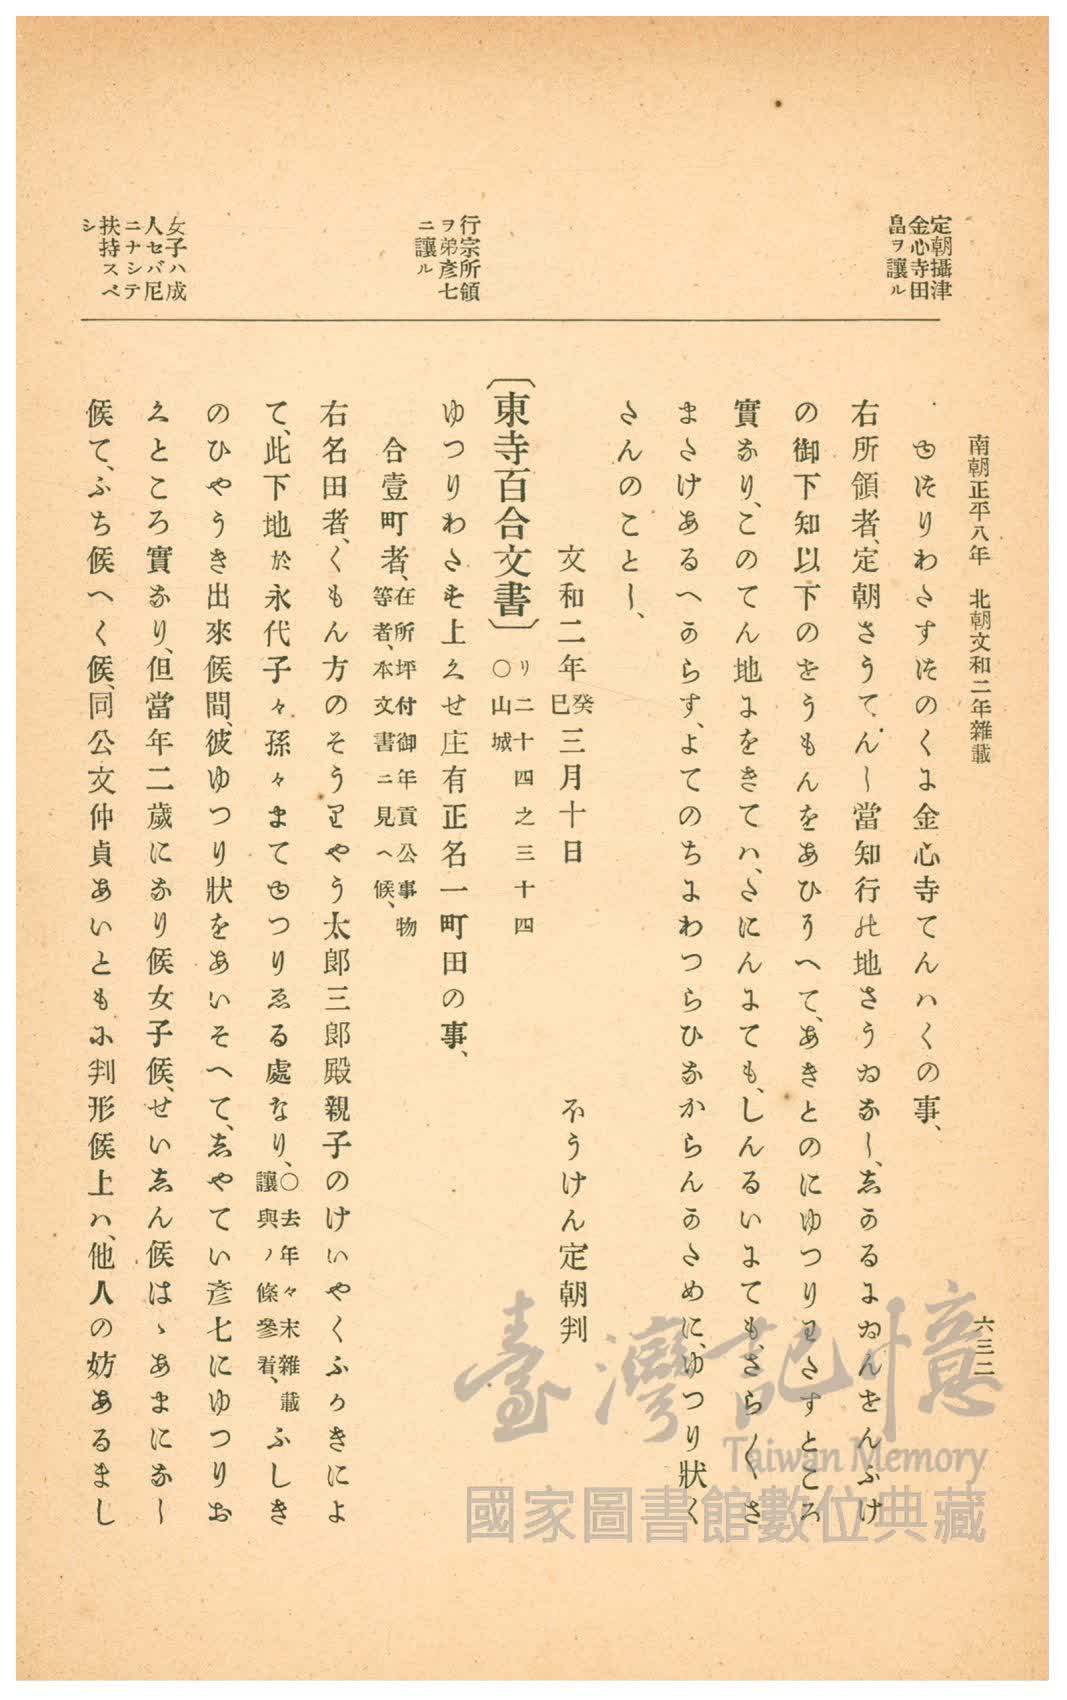 南朝正平八年 北朝文和二年雜載
六三二
定朝攝津
金心寺田
畠ヲ讓ル
行宗所領
ヲ弟彥七
ニ讓ル
女子ハ成
人セバ尼
ニナシテ
扶持スベ
シ
ゆつりわたすつのくに金心寺てんハくの事、
右所領者、定朝さうてんし當知行の地さうゐなし、しかるにゐんせんふけ
の御下知以下のをうもんをあひうへて、あきとのにゆつりわたすところ
實なり、このてん地にをきてハ、たにんにても、しんるいにてもさら〳〵さ
またけあるへからす、よてのちにわつらひなからんかために、ゆつり狀く
たんのことし、
文和二年癸巳三月十日 ふうけん定朝判
〔東寺百合文書〕 リ二十四之三十四 〇山城
ゆつりわたす上久せ庄有正名一町田の事、
合壹町者、在所坪付御年貢公事物等者、本文書ニ見ヘ候、
右名田者、くもん方のそうりやう太郎三郎殿親子のけいやくふかきによ
て、此下地於永代子々孫々まてゆつりゑる處なり、〇去年々末雜載讓與ノ條參看、ふしき
のひやうき出來候間、彼ゆつり狀をあいそへて、しやてい彥七にゆつりお
くところ實なり、但當年二歲になり候女子候、せいしん候はゝあまになし
候て、ふち候へく候、同公文仲貞あいともに判形候上ハ、他人の妨あるまし
臺灣記憶
Taiwan Memory
國家圖書館數位典藏